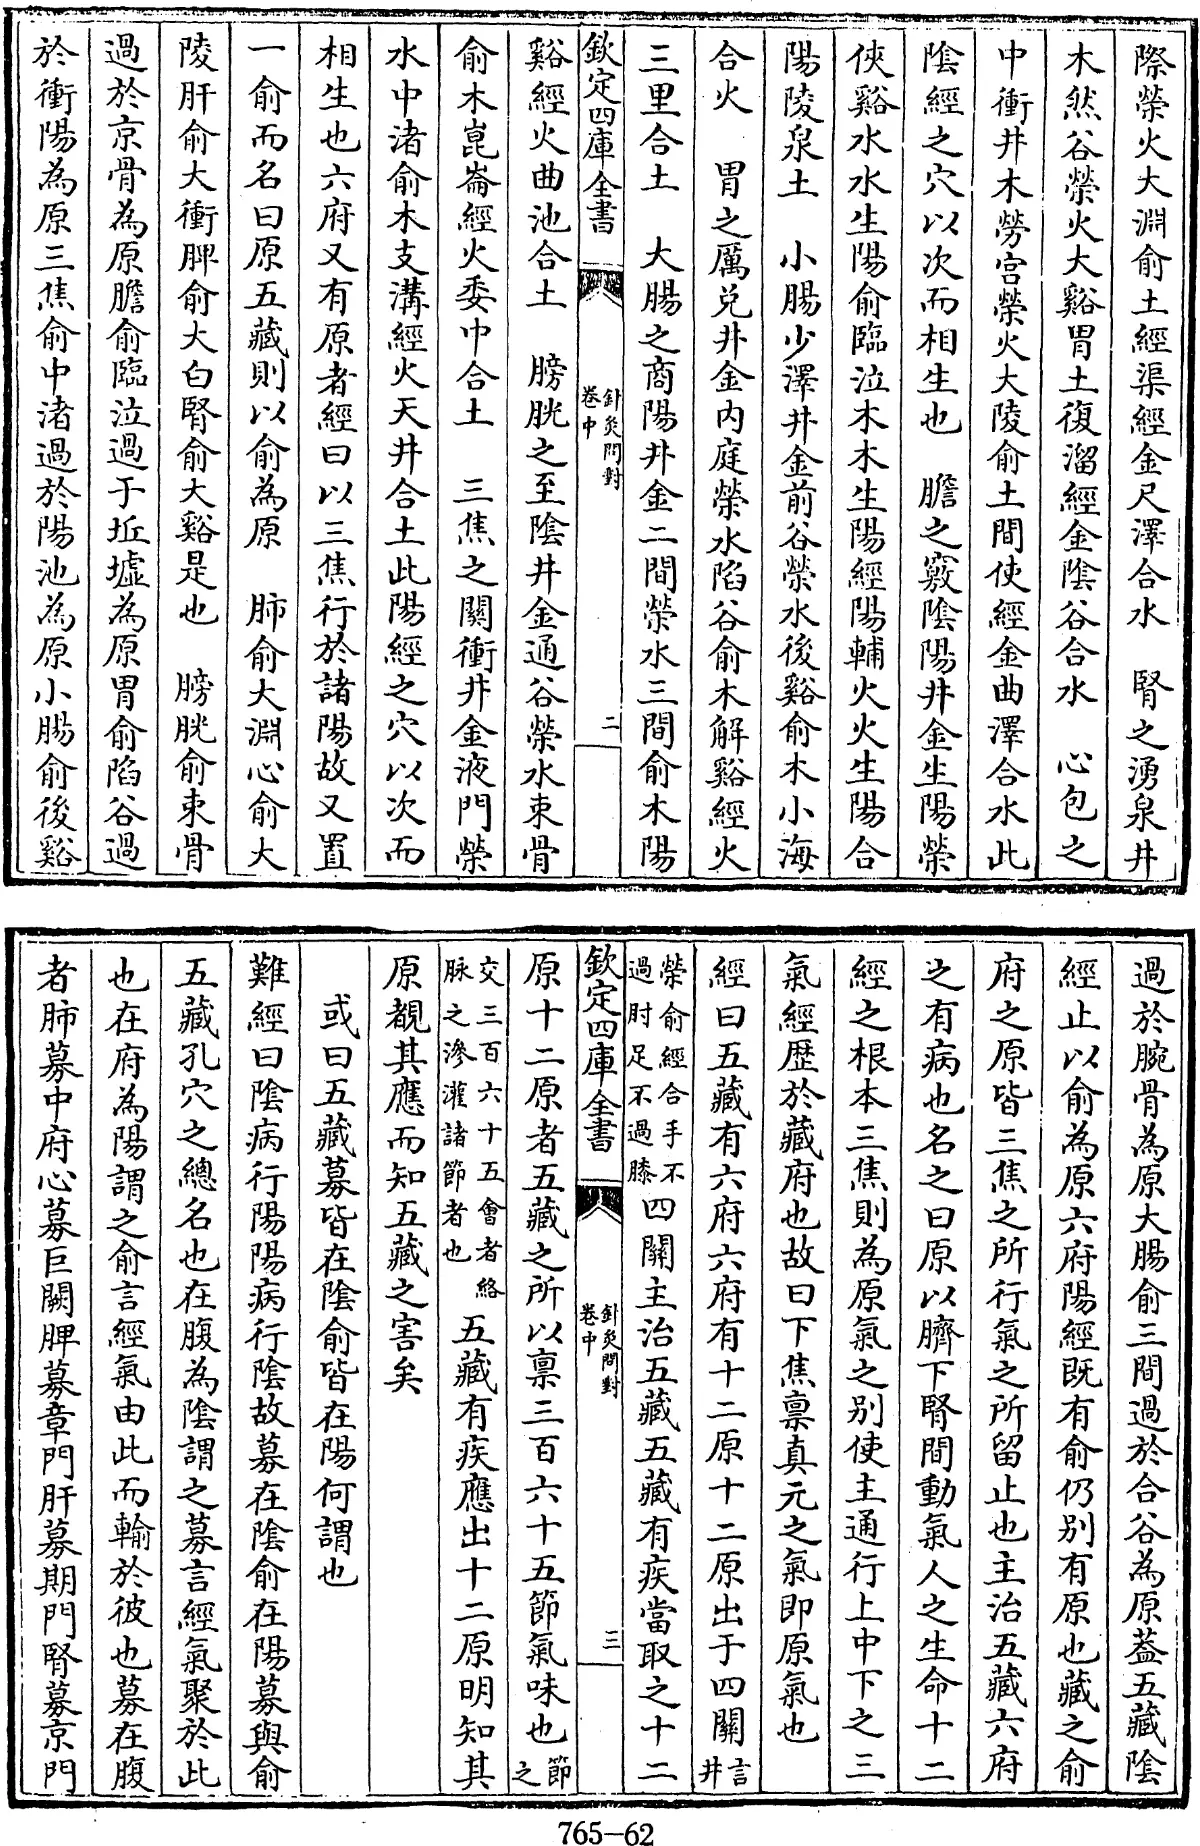 際滎火大淵俞土經渠經金尺澤合水　腎之湧泉井
木然谷滎火大谿胃土復溜經金陰谷合水　心包之
中衝井木勞宫滎火大陵俞土間使經金曲澤合水此
陰經之穴以次而相生也　膽之竅陰陽井金生陽滎
俠谿水水生陽俞臨泣木木生陽經陽輔火火生陽合
陽陵泉土　小腸少澤井金前谷滎水後谿俞木小海
合火　胃之厲兌井金内庭滎水陷谷俞木解谿經火
三里合土　大腸之商陽井金二間滎水三間俞木陽
欽定四庫全書　針灸問對卷中　二
谿經火曲池合土　膀胱之至陰井金通谷滎水束骨
俞木崑崙經火委中合土　三焦之關衝井金液門滎
水中渚俞木支溝經火天井合土此陽經之穴以次而
相生也六府又有原者經曰以三焦行於諸陽故又置
一俞而名曰原五藏則以俞為原　肺俞大淵心俞大
陵肝俞大衝脾俞大白腎俞大谿是也　膀胱俞束骨
過於京骨為原膽俞臨泣過于坵墟為原胃俞陷谷過
於衝陽為原三焦俞中渚過於陽池為原小腸俞後谿
過於腕骨為原大腸俞三間過於合谷為原蓋五藏陰
經止以俞為原六府陽經既有俞仍别有原也藏之俞
府之原皆三焦之所行氣之所留止也主治五藏六府
之有病也名之曰原以臍下腎間動氣人之生命十二
經之根本三焦則為原氣之别使主通行上中下之三
氣經歴於藏府也故曰下焦禀真元之氣即原氣也
經曰五藏有六府六府有十二原十二原出于四關言井
滎俞經合手不過肘足不過膝四關主治五藏五藏有疾當取之十二
欽定四庫全書　針灸問對卷中　三
原十二原者五藏之所以禀三百六十五節氣味也節之
交三百六十五會者絡脉之滲灌諸節者也五藏有疾應出十二原明知其
原覩其應而知五藏之害矣
或曰五藏募皆在陰俞皆在陽何謂也
難經曰陰病行陽陽病行陰故募在陰俞在陽募與俞
五藏孔穴之總名也在腹為陰謂之募言經氣聚於此
也在府為陽謂之俞言經氣由此而輸於彼也募在腹
者肺募中府心募巨闕脾募章門肝募期門腎募京門
765-62